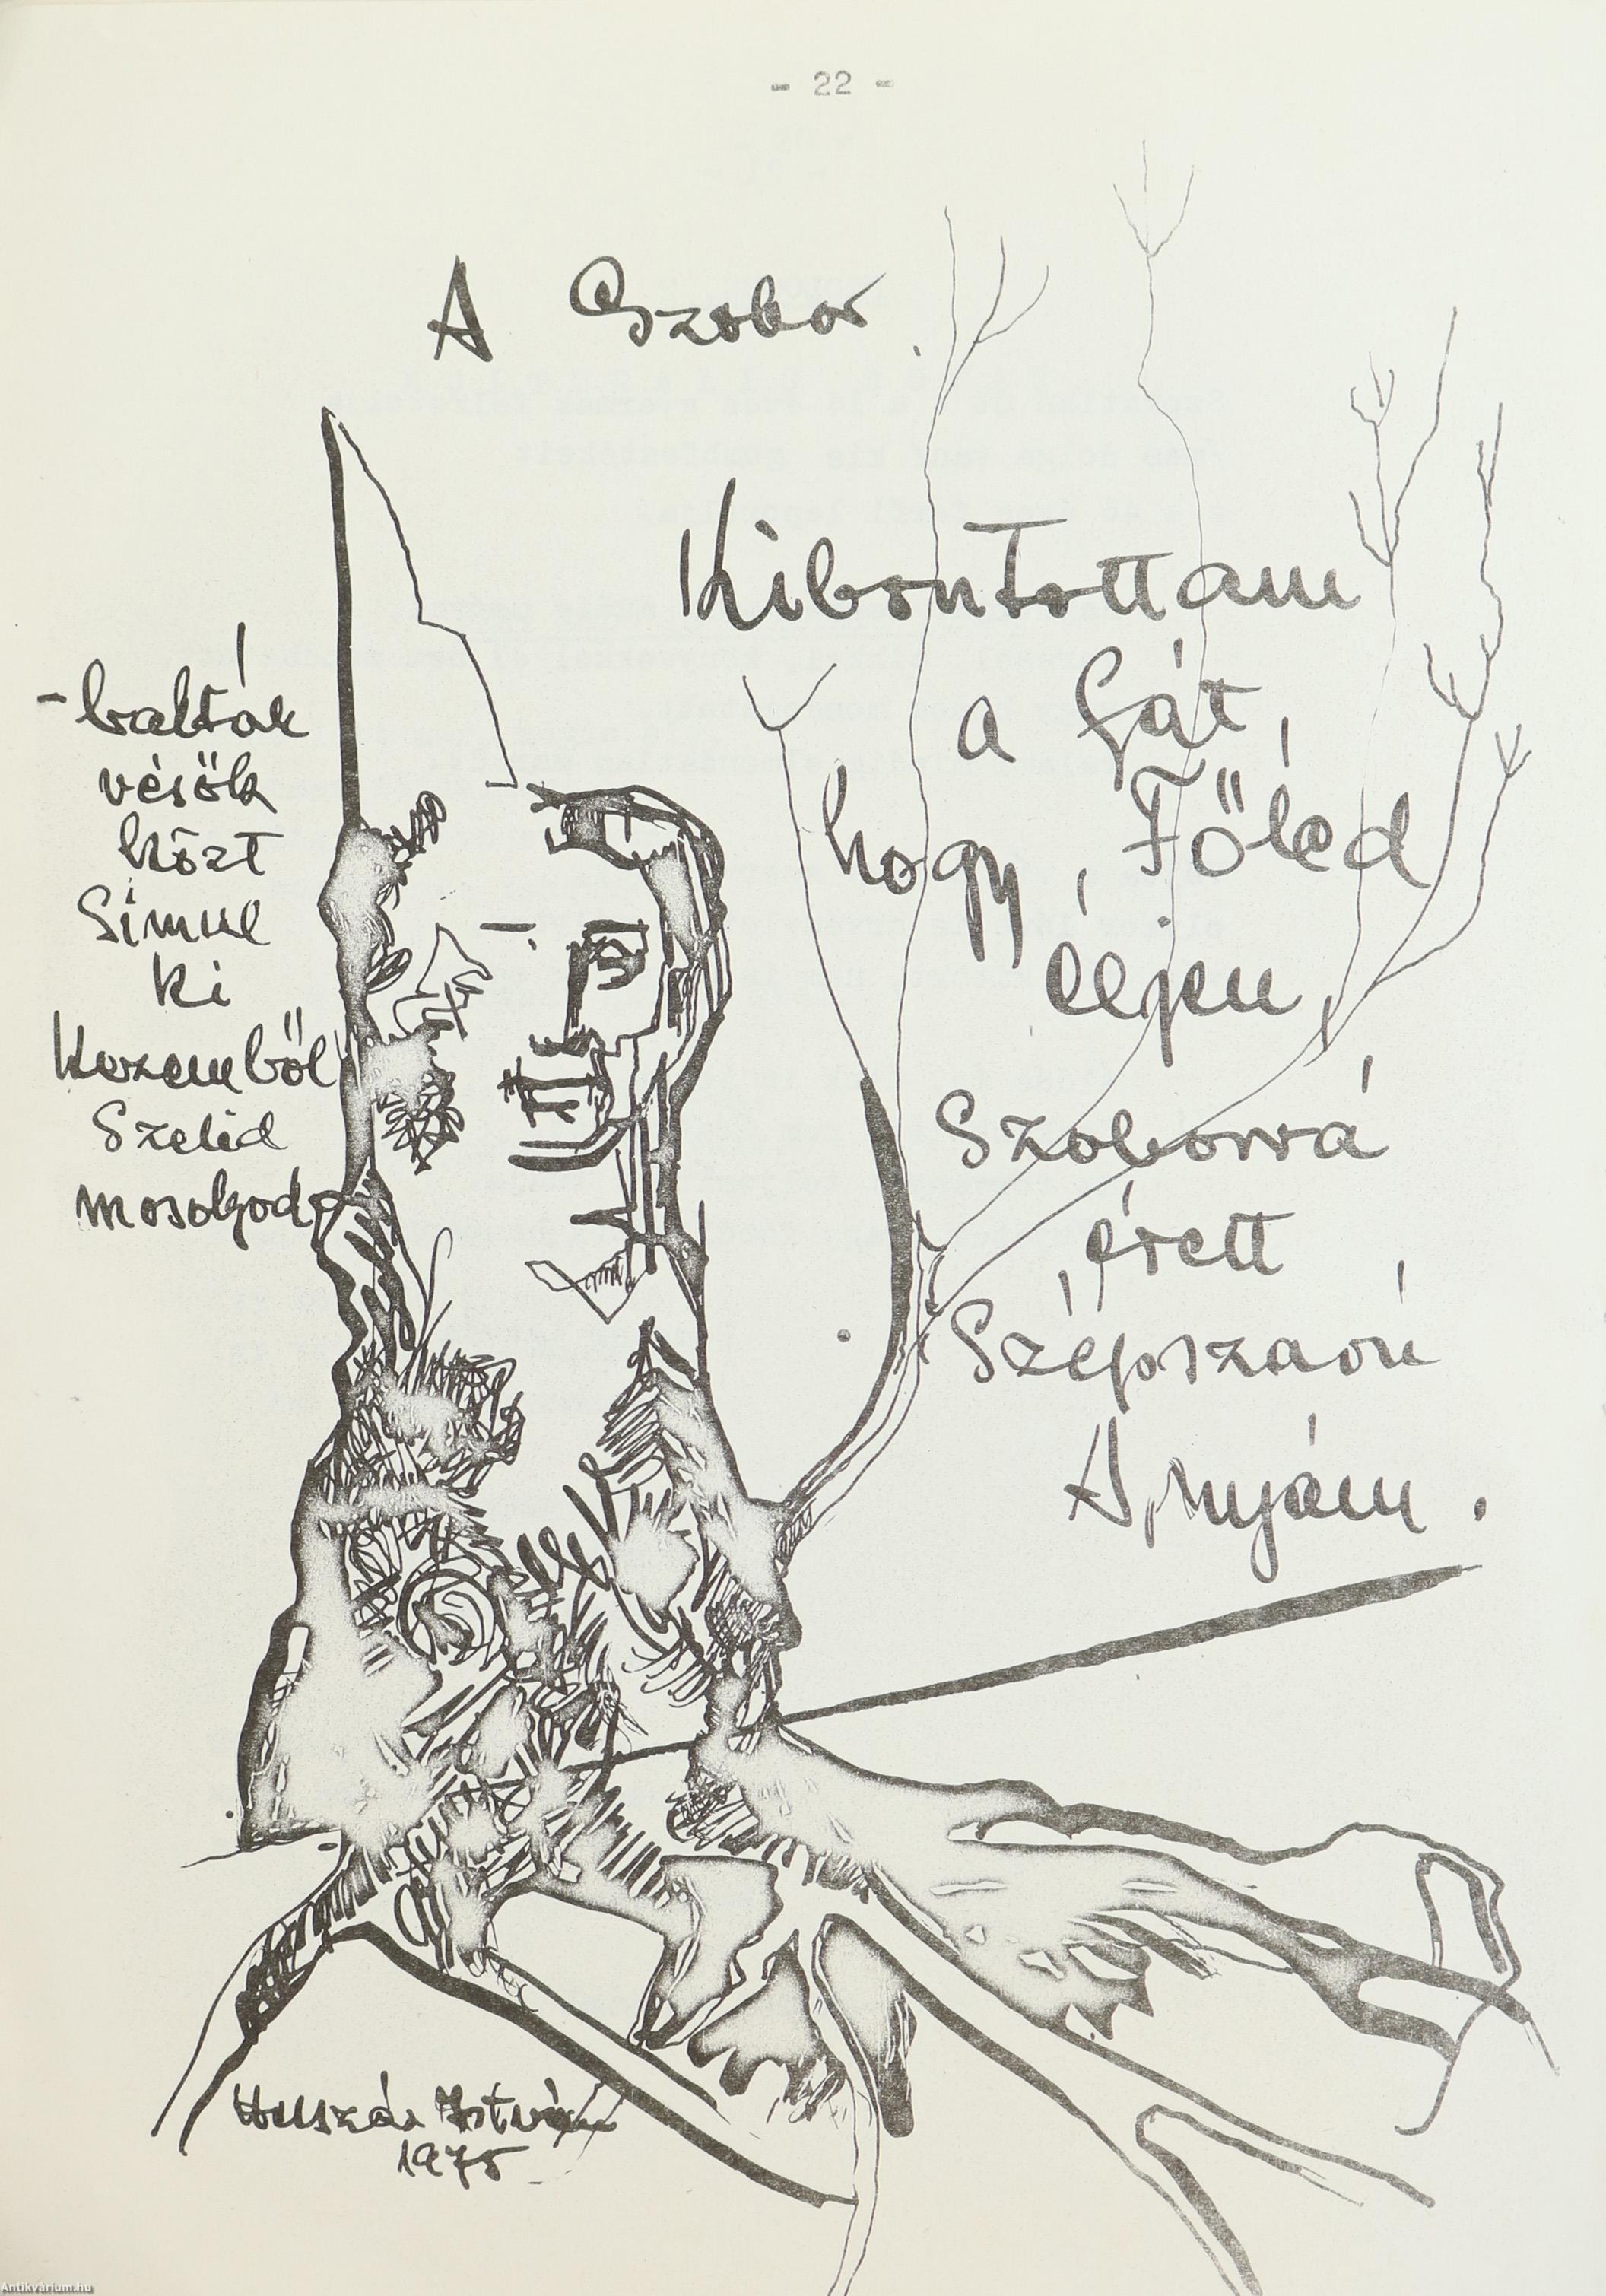 - 22 -
A Szobor
Kibontottam
a fát,
hogy Főléd
éljen,
Szoborrá
érett
Szépszavú
Anyám.
- balták
vésők
közt
Simul
ki
Kezemből
Szelid
mosolyod
Huszár István
1975
Antikvárium.hu